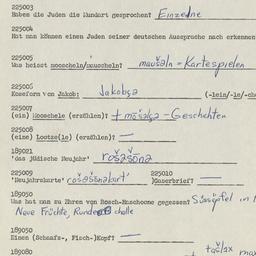 225003
Haben die Juden die Mundart gesprochen? Einzelne
225004
Hat man können einen Juden seiner deutschen Aussprache nach erkennen
225005
Was heisst mooscheln/mauscheln? maušəln = Kartespielen
225006
Koseform von Jakob: Jakobsa (-lein/-le/-che
225007
(ein) Mooschele (erzählen)? Geschichten
225008
(eine) Lootze(le) (erzählen)? —
189021
'das Jüdische Neujahr' rošəšōna
225009 225010
'Neujahrskarte' rošəšōnakart' )Gaserbrief? —
189050
Was hat man zu Ehren von Rosch-Haschone gegessen? Süssapfel in
Neue Früchte, Runde
189050
Einen (Schaafs-, Fisch-)Kopf? —
189080 tašləx